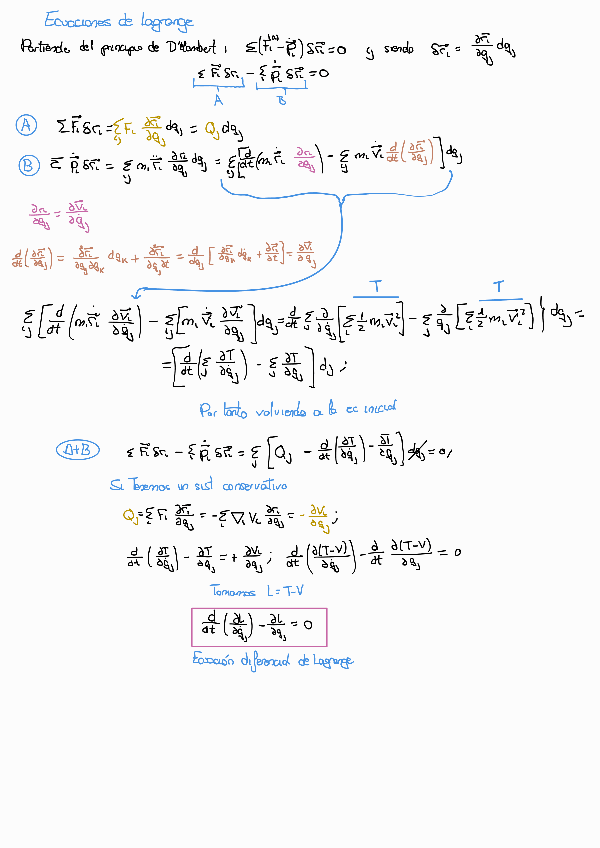 Ecuaciones de Lagrange
Partiendo del principio de D'Alembert: Σ(F⃗ᵢ⁽ᵃ⁾ - ṗ⃗ᵢ) δr⃗ᵢ = 0 y siendo δr⃗ᵢ = ∂r⃗ᵢ/∂qⱼ dqⱼ
Σ F⃗ᵢ δrᵢ - Σ ṗ⃗ᵢ δr⃗ᵢ = 0
A B
A Σ F⃗ᵢ δrᵢ = Σᵢⱼ Fᵢ ∂r⃗ᵢ/∂qⱼ dqⱼ = Qⱼ dqⱼ
B Σ ṗ⃗ᵢ δr⃗ᵢ = Σᵢⱼ mᵢ r̈⃗ᵢ ∂rᵢ/∂qⱼ dqⱼ = Σᵢⱼ [d/dt (mᵢ ṙ⃗ᵢ ∂rᵢ/∂qⱼ) - Σᵢⱼ mᵢ v⃗ᵢ d/dt (∂r⃗ᵢ/∂qⱼ)] dqⱼ
∂rᵢ/∂qⱼ = ∂v⃗ᵢ/∂q̇ⱼ
d/dt (∂r⃗ᵢ/∂qⱼ) = ∂²r⃗ᵢ/∂qⱼ∂qₖ dqₖ + ∂²r⃗ᵢ/∂qⱼ∂t = d/dqⱼ [∂r⃗ᵢ/∂qₖ dqₖ + ∂r⃗ᵢ/∂t] = ∂v⃗ᵢ/∂qⱼ
T T
Σᵢⱼ [d/dt (mᵢ ṙ⃗ᵢ ∂v⃗ᵢ/∂q̇ⱼ) - Σᵢⱼ [mᵢ v⃗ᵢ ∂v⃗ᵢ/∂qⱼ] dqⱼ = d/dt Σⱼ ∂/∂q̇ⱼ [Σᵢ ½ mᵢ v⃗ᵢ²] - Σⱼ ∂/∂qⱼ [Σᵢ ½ mᵢ v⃗ᵢ²] } dqⱼ =
= [d/dt (Σⱼ ∂T/∂q̇ⱼ) - Σⱼ ∂T/∂qⱼ] dⱼ ;
Por tanto volviendo a la ec inicial
A+B Σ F⃗ᵢ δr⃗ᵢ - Σ ṗ⃗ᵢ δr⃗ᵢ = Σⱼ [Qⱼ - d/dt (∂T/∂q̇ⱼ) - ∂T/∂qⱼ] dqⱼ = 0,
Si Tenemos un sist conservativo
Qⱼ = Σᵢ Fᵢ ∂r⃗ᵢ/∂qⱼ = - Σᵢ ∇ᵢ Vᵢ ∂r⃗ᵢ/∂qⱼ = - ∂Vᵢ/∂qⱼ ;
d/dt (∂T/∂q̇ⱼ) - ∂T/∂qⱼ = + ∂Vᵢ/∂qⱼ ; d/dt (∂(T-V)/∂q̇ⱼ) - d/dt ∂(T-V)/∂qⱼ = 0
Tomamos L = T-V
d/dt (∂L/∂q̇ⱼ) - ∂L/∂qⱼ = 0
Ecuación diferencial de Lagrange